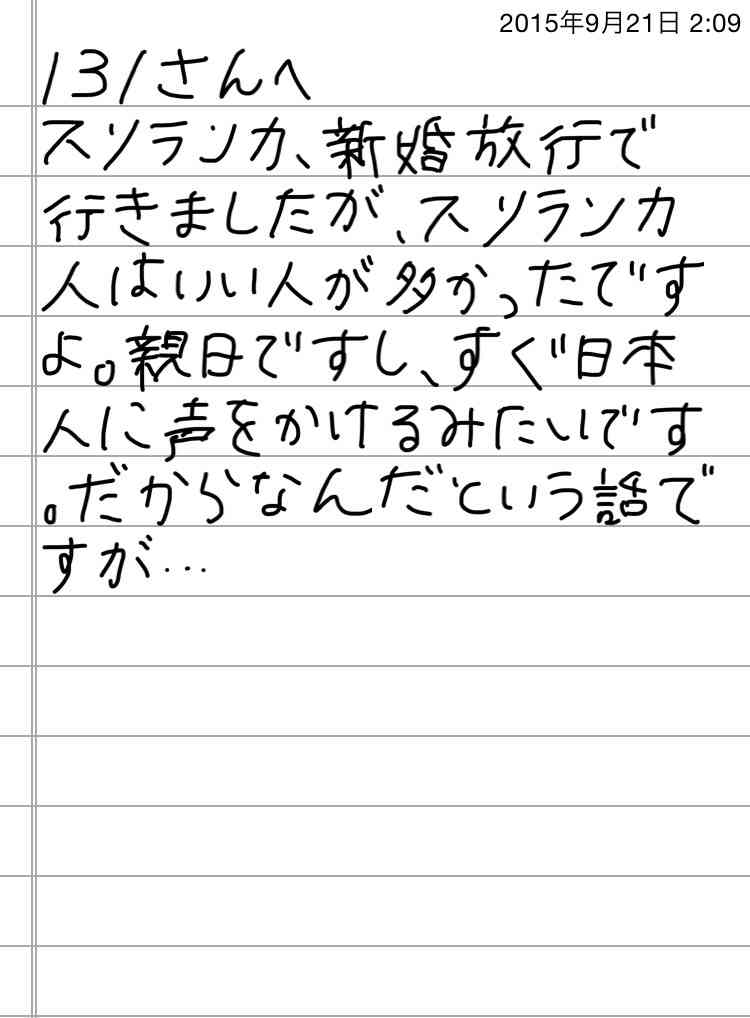 2015年9月21日 2:09
131さんへ
スリランカ、新婚旅行で
行きましたが、スリランカ
人はいい人が多かったです
よ。親日ですし、すぐ日本
人に声をかけるみたいです
。だからなんだという話で
すが…